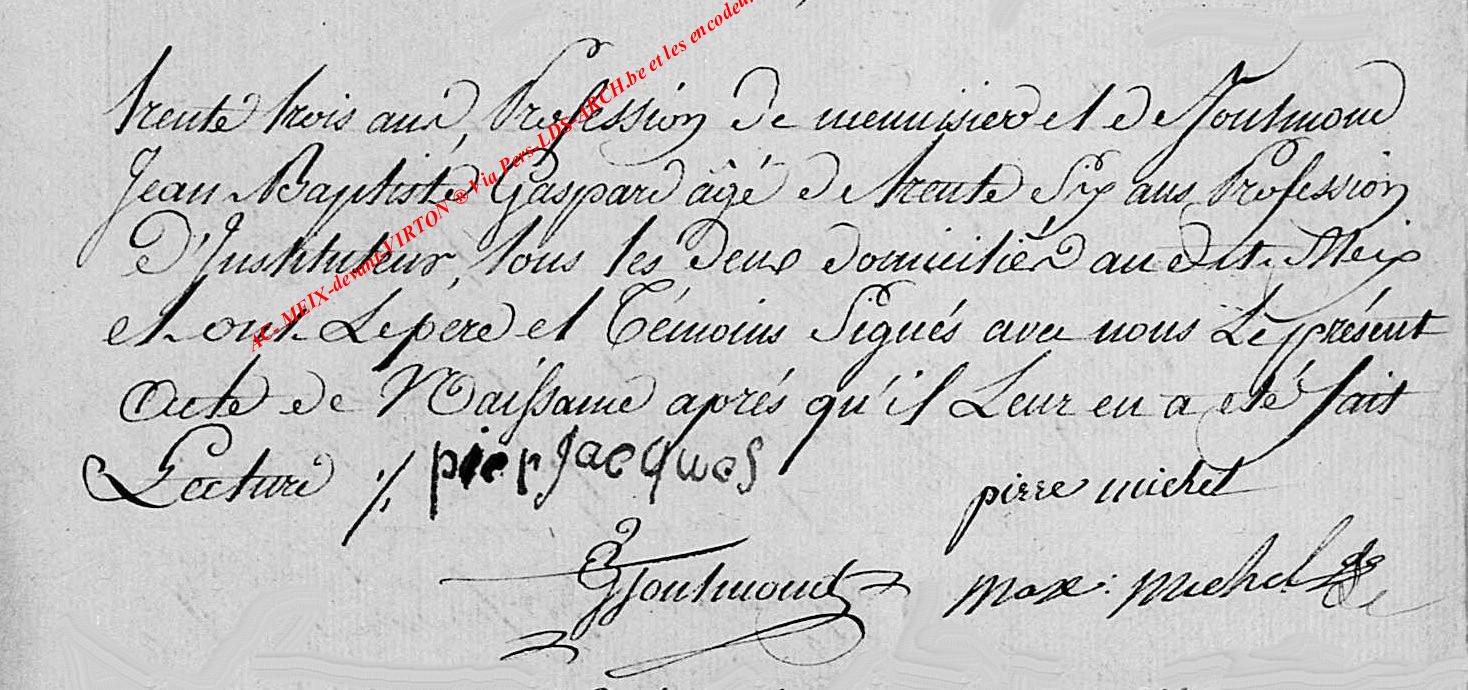 trente trois ans, Profession de menuisier et de Toutmond
Jean Baptiste Gaspard âgé de trente Six ans Profession
D'Instituteur, tous les deux domiciliés au dit Meix
et ont Le père et Témoins Signés avec nous Le présent
Acte de Naissance aprés qu'il Leur en a eté fait
Lecture ·/.
pier Jacques
pirre michel
Toutmond
max: michel
AC- MEIX-devant-VIRTON ® Via Pers-LDS-ARCH.be et les encodeu